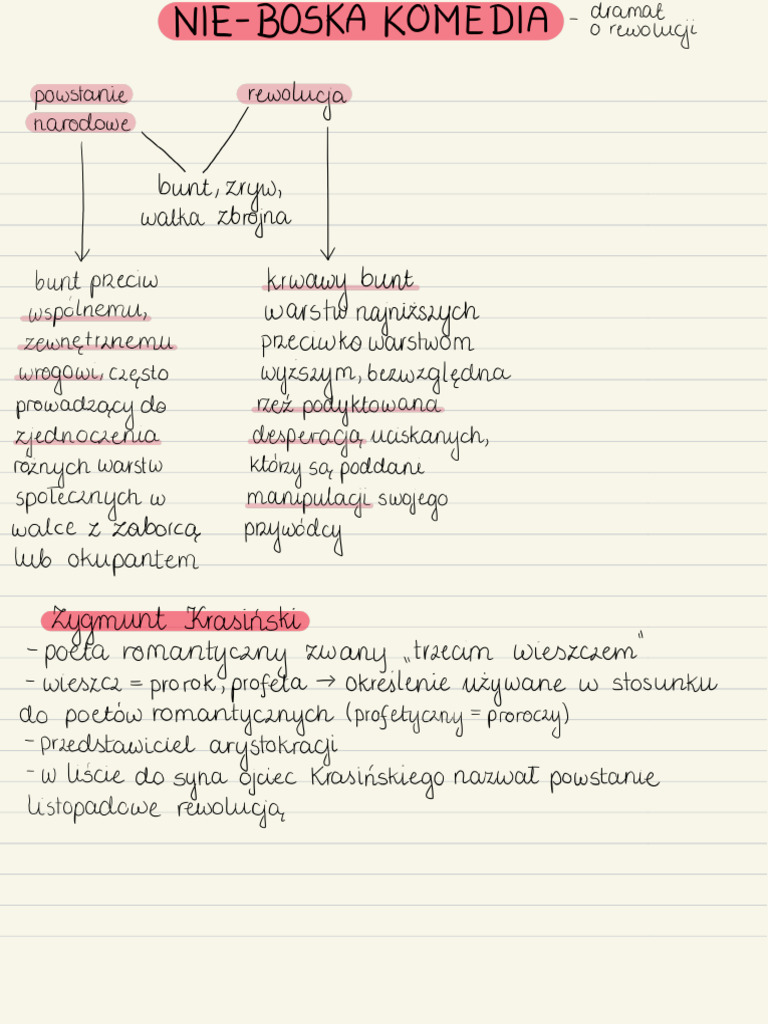 NIE-BOSKA KOMEDIA - dramat
o rewolucji
powstanie
narodowe
rewolucja
bunt, zryw,
walka zbrojna
bunt przeciw
wspólnemu,
zewnętrznemu
wrogowi, często
prowadzący do
zjednoczenia
różnych warstw
społecznych w
walce z zaborcą
lub okupantem
krwawy bunt
warstw najniższych
przeciwko warstwom
wyższym, bezwzględna
rzeź podyktowana
desperacją uciskanych,
którzy są poddani
manipulacji swojego
przywódcy
Zygmunt Krasiński
- poeta romantyczny zwany „trzecim wieszczem"
- wieszcz = prorok, profeta → określenie używane w stosunku
do poetów romantycznych (profetyczny = proroczy)
- przedstawiciel arystokracji
- w liście do syna ojciec Krasińskiego nazwał powstanie
listopadowe rewolucją